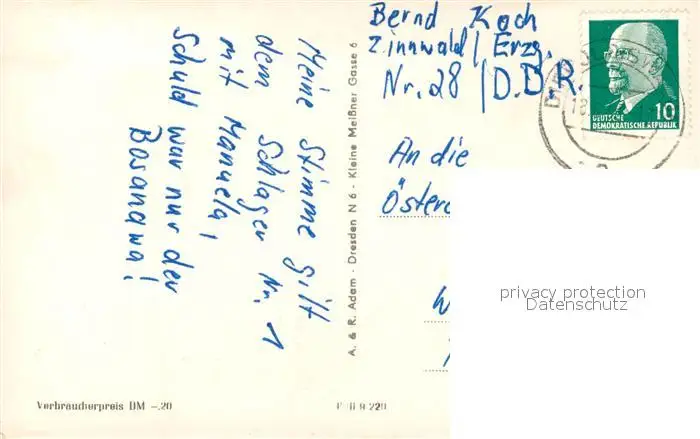 Meine Stimme gilt
dem Schlager Nr. 1
mit Manuela,
Schuld war nur der
Bosanawa!
A. & R. Adam - Dresden N 6 - Kleine Meißner Gasse 6
Bernd Koch
Zinnwald / Erzg.
Nr. 28 / D.D.R.
DEUTSCHE
DEMOKRATISCHE REPUBLIK
10
An die
Öster
privacy protection
Datenschutz
Verbraucherpreis DM -.20